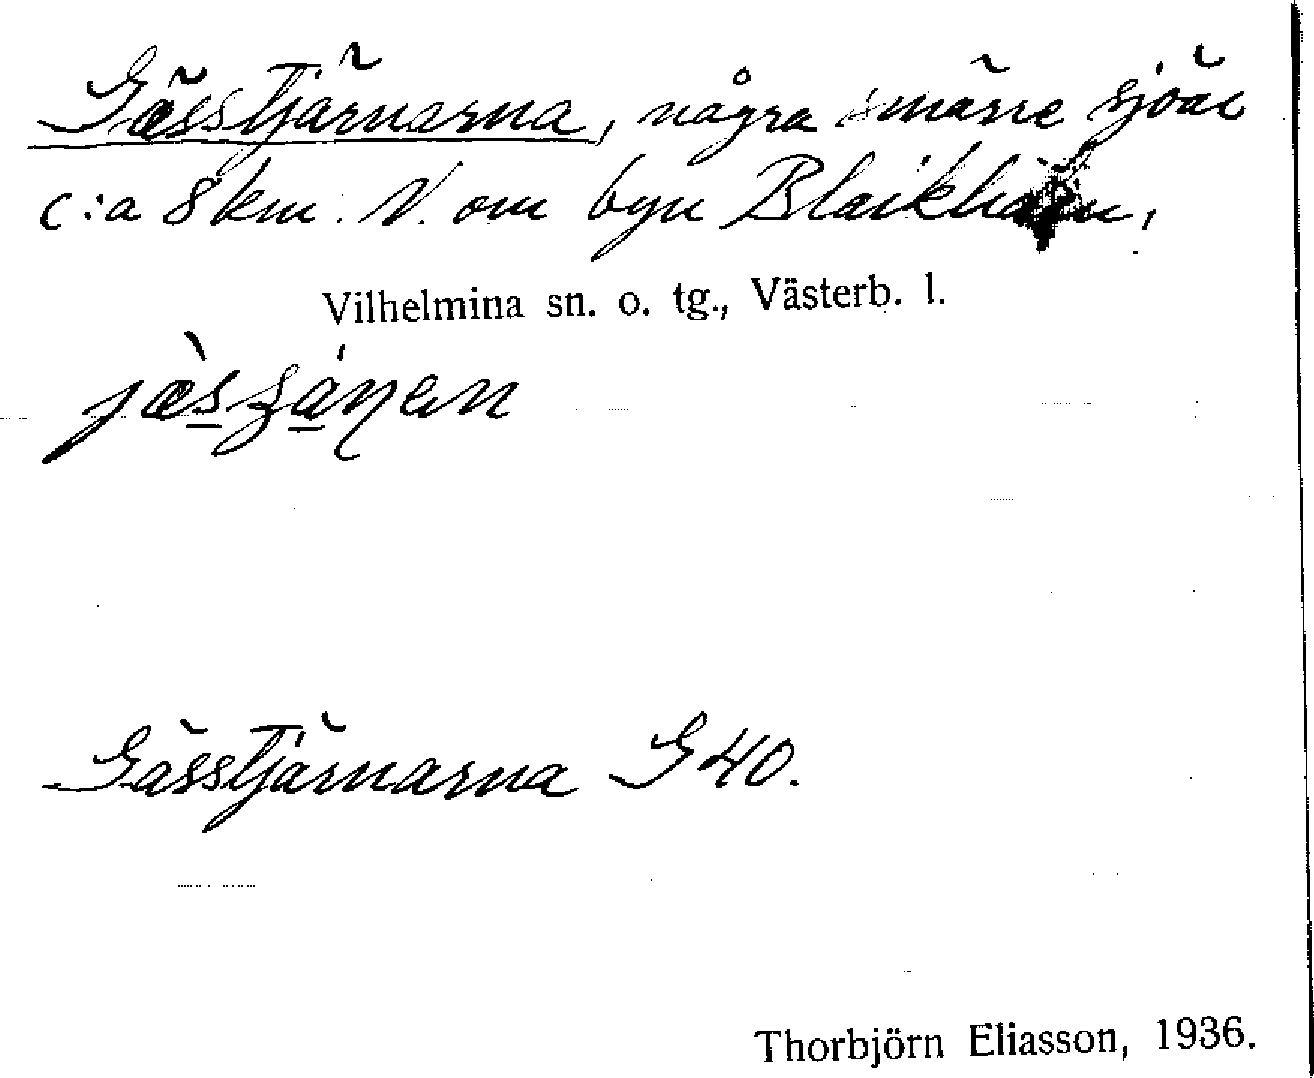 Gässtjärnarna, några smärre sjöar
c:a 8 km. V. om byn
Vilhelmina sn. o. tg., Västerb. l.
Gässtjärnarna G 40.
Thorbjörn Eliasson, 1936.